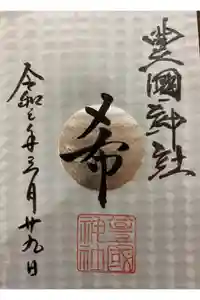 豊國神社
希
豊國
神社
令和七年三月廿九日